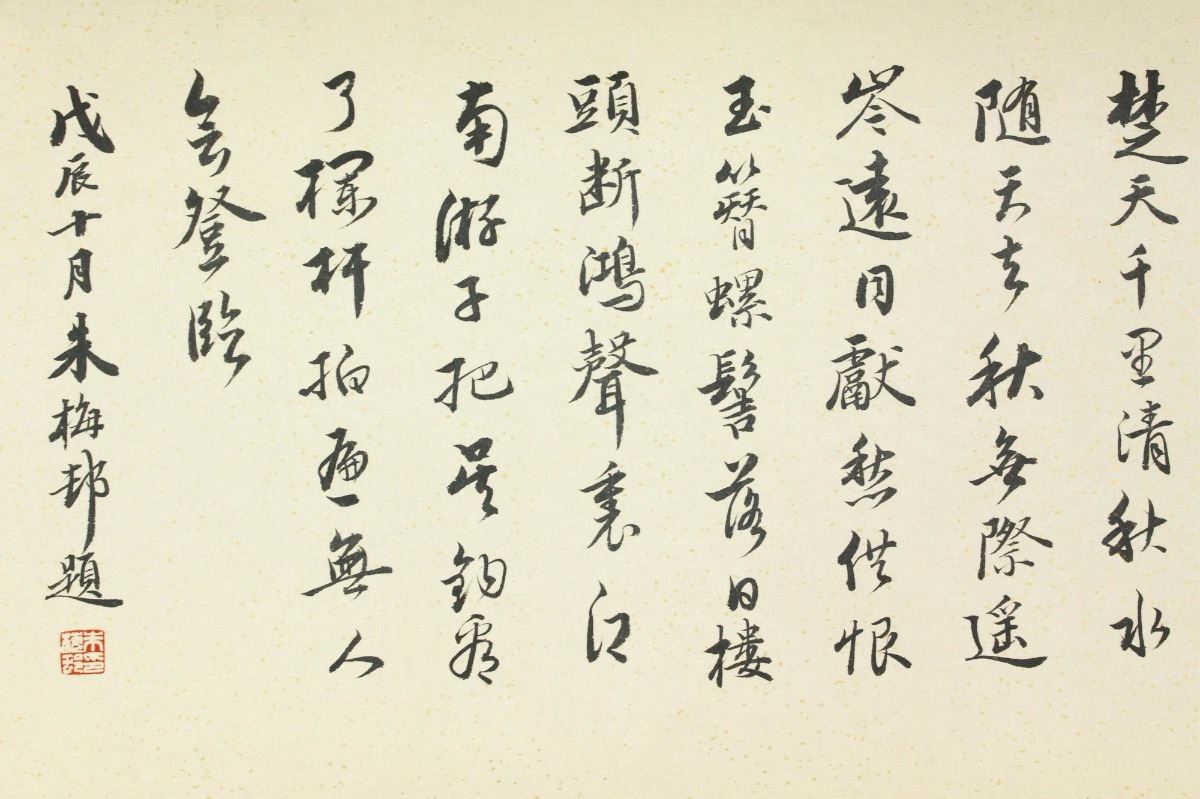 楚天千里清秋水
随天去秋無際遥
岑遠目獻愁供恨
玉簪螺髻落日樓
頭断鴻聲裏江
南游子把吴鈎看
了欄杆拍遍無人
会登臨
戊辰十月朱梅邨題